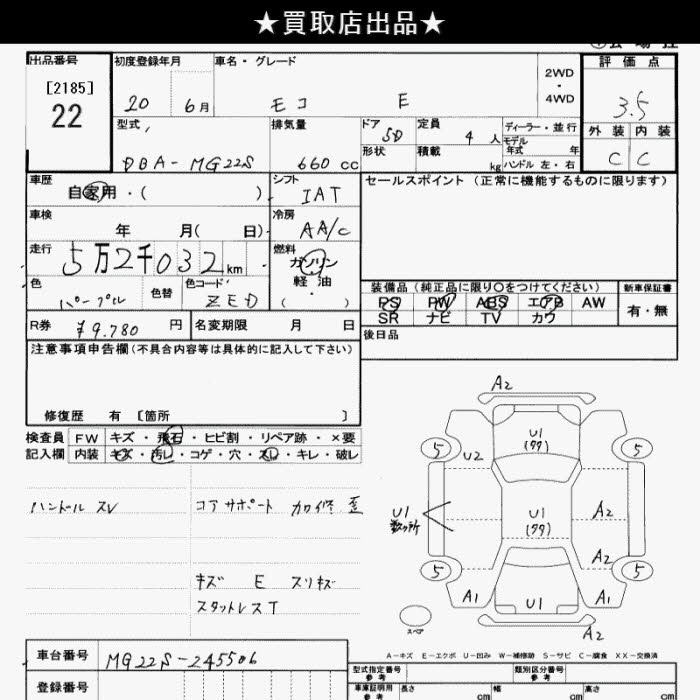 ★買取店出品★
出品番号 初度登録年月 車名・グレード 評価点
[2185]
22 20 6月 モコ E 2WD・4WD 3.5
型式 排気量 ドア 5D 定員 4人 ディーラー・並行 外装 内装
形状 積載 kg モデル年式 年
DBA-MG22S 660cc ハンドル 左・右 C C
車歴 自家用・( ) シフト IAT セールスポイント (正常に機能するものに限ります)
車検 年 月( 日) 冷房 AA/C
走行 5万2千032km 燃料 ガソリン・軽油・( )
色 パープル 色替 色コード ZED
装備品 (純正品に限り○をつけてください) 新車保証書
PS PW ABS エアB AW 有・無
SR ナビ TV カワ
R券 ¥9,780円 名変期限 月 日 後日品
注意事項申告欄(不具合内容等は具体的に記入して下さい)
修復歴 有 〔箇所 〕
検査員 FW キズ・飛石・ヒビ割・リペア跡・×要
記入欄 内装 キズ・汚レ・コゲ・穴・スレ・キレ・破レ
ハンドル スレ コアサポート 加修 歪
キズ E スリキズ
スタットレスT
A2
5 U1 5
(99)
U2
U1 数ヶ所 U1 A2
(99)
A2
5 5
A1 U1 A1
スペア A2
A-キズ E-エクボ U-凹み W-補修跡 S-サビ C-腐食 XX-交換済
車台番号 MG22S-245506
型式指定番号 参考 類別区分番号 参考
登録番号 車庫証明用 参考 長さ cm 幅 cm 高さ cm